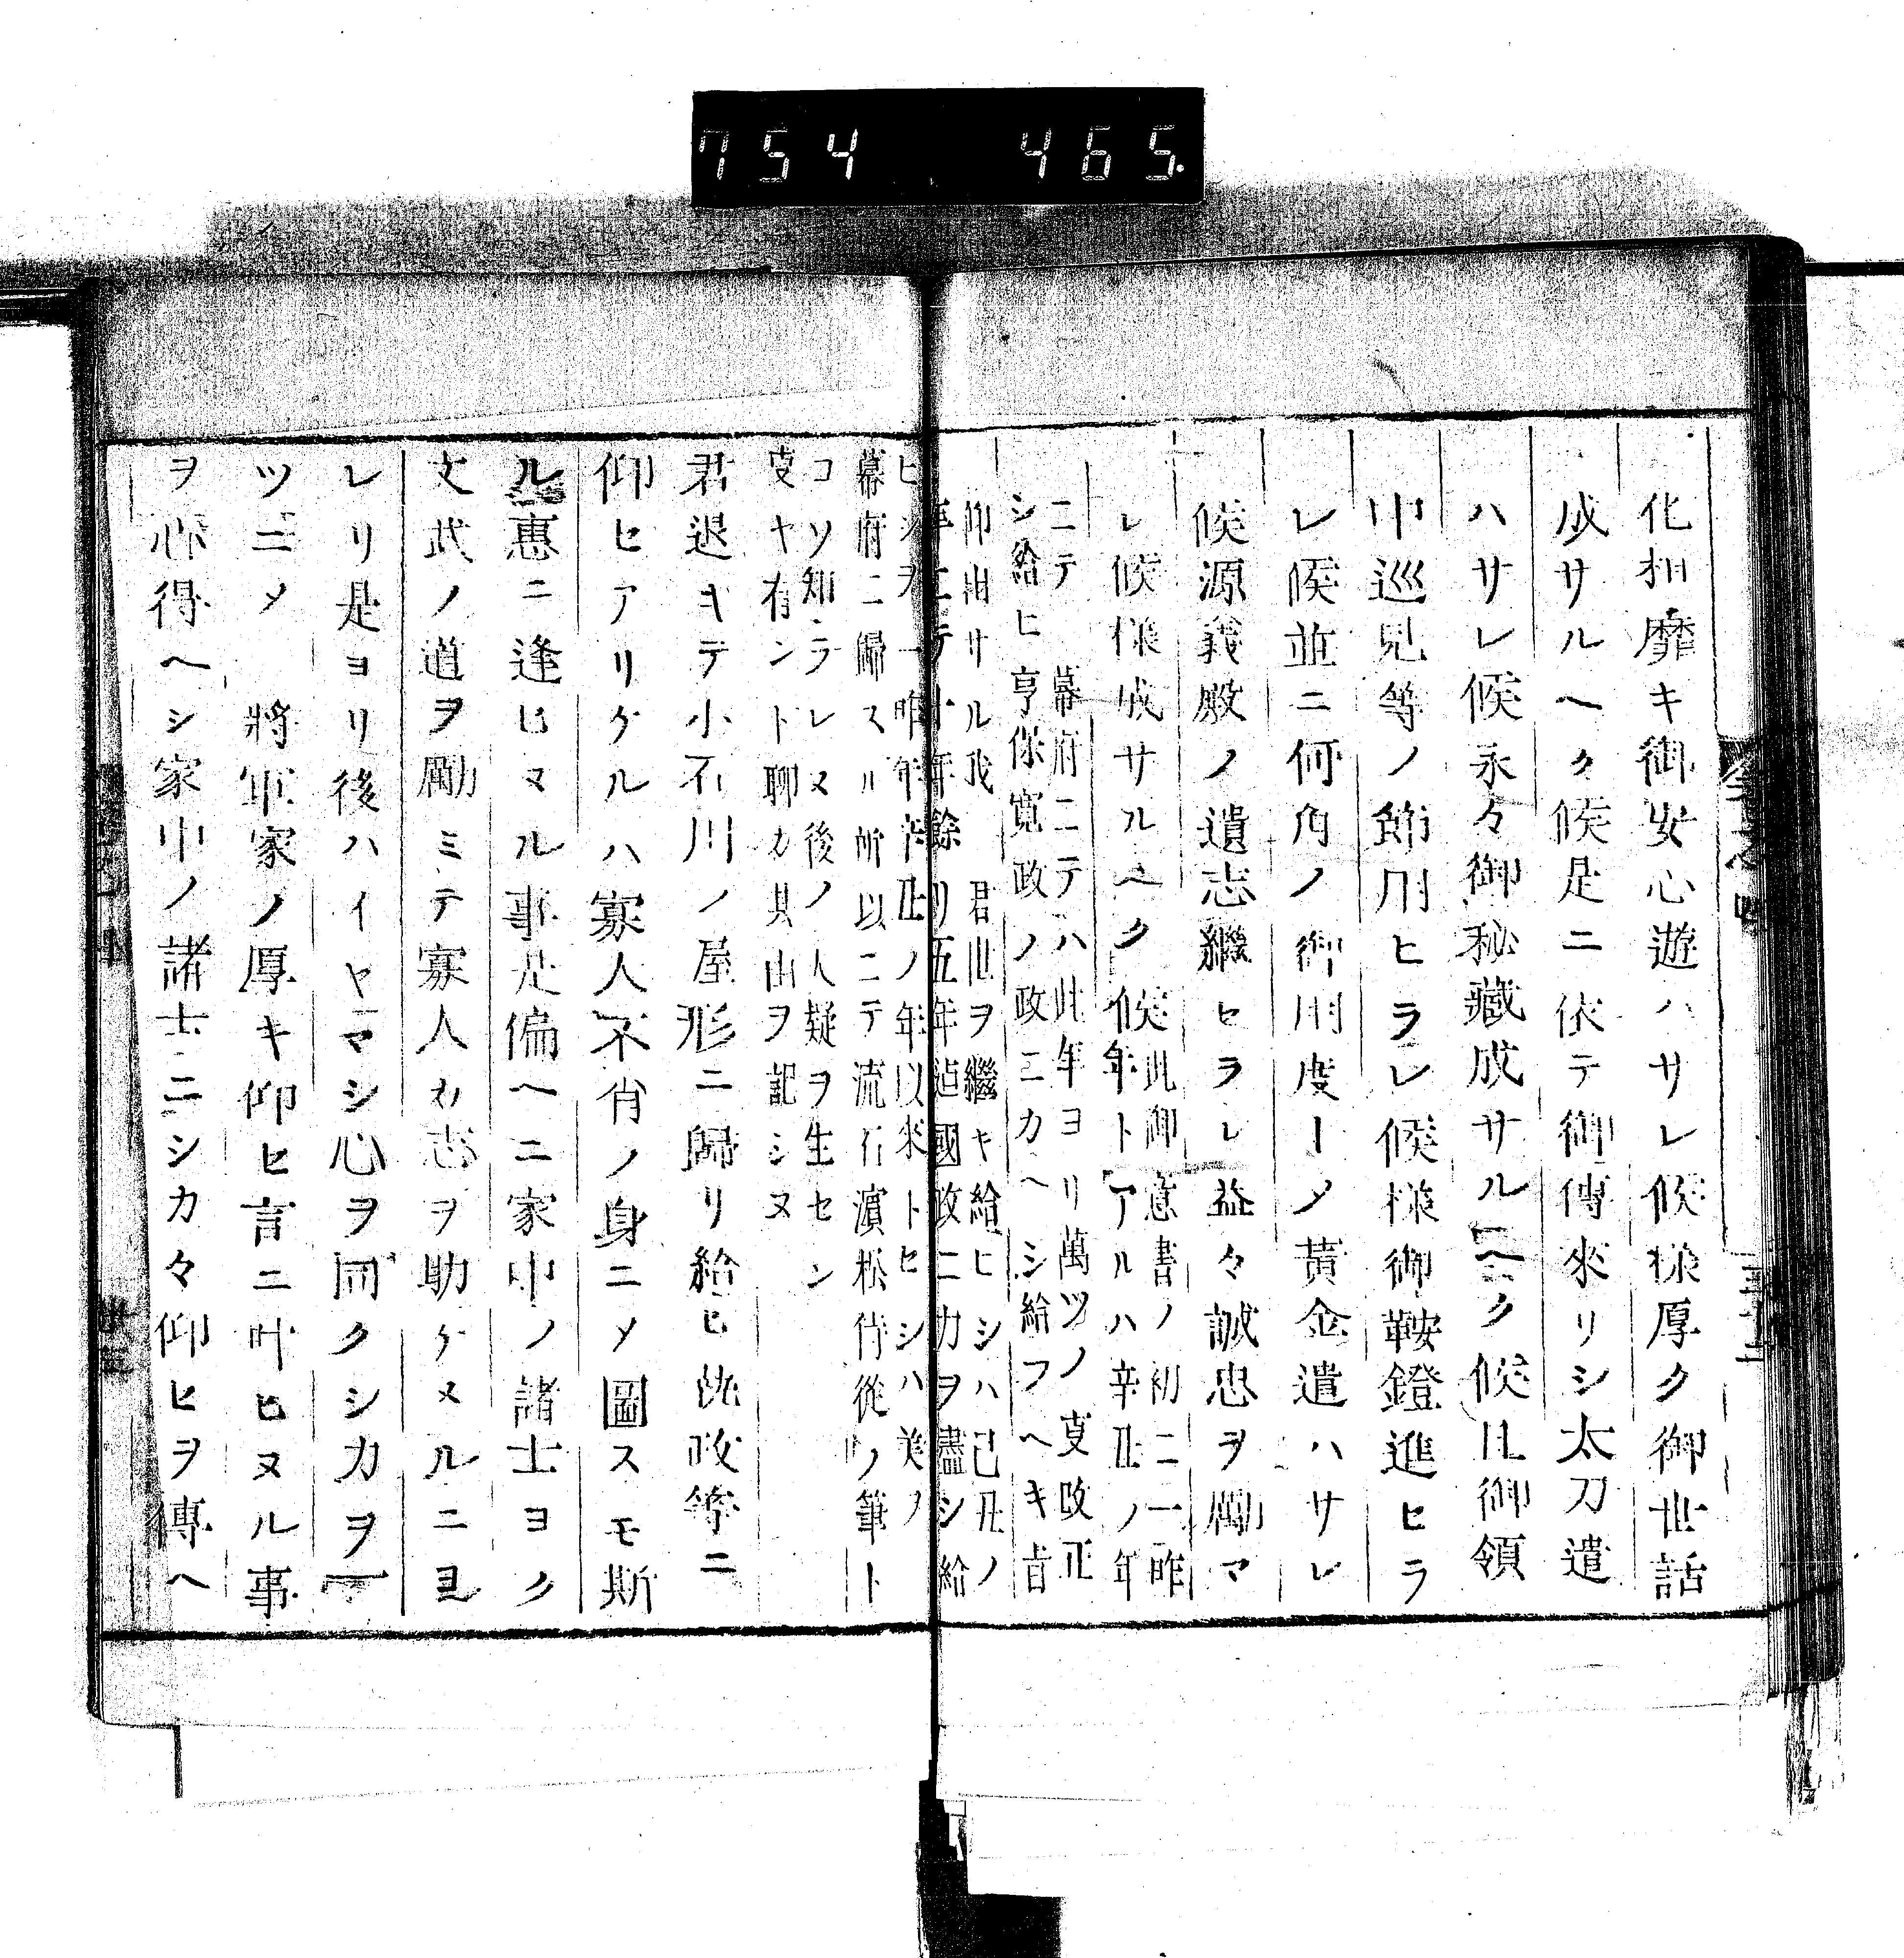 754 465.
化相靡キ御安心遊ハサレ候樣厚ク御世話
成サルヘク候是ニ依テ御傳來リシ太刀遣
ハサレ候永々御秘藏成サルヘク候且御領
中巡見等ノ節用ヒラレ候樣御鞍鐙進ヒラ
レ候並ニ何角ノ御用度ーメ黃金遣ハサレ
候源義殿ノ遺志繼セラレ益々誠忠ヲ勵マ
レ候樣成サルヘク候
此御意書ノ初ニ一昨
年トアルハ辛丑ノ年
ニテ 幕府ニテハ此年ヨリ萬ツノ叓改正
シ給ヒ享保寬政ノ政ニカヘシ給フヘキ旨
仰出サル我 君世ヲ繼キ給ヒシハ己丑ノ
年ニテ十年餘リ五年迠國政ニ力ヲ盡シ給
ヒシヲ一昨年辛丑ノ年以來トヒシハ美ノ
幕府ニ歸スル所以ニテ流石濵松侍從ノ筆ト
コソ知ラレヌ後ノ人疑ヲ生セン
叓ヤ有ント聊カ其由ヲ記シヌ
君退キテ小石川ノ屋形ニ歸リ給ヒ執政等ニ
仰セアリケルハ寡人不肖ノ身ニメ圖スモ斯
ル惠ニ逢ヒヌル事是偏ヘニ家中ノ諸士ヨク
文武ノ道ヲ勵ミテ寡人カ志ヲ助ケヌルニヨ
レリ是ヨリ後ハイヤマシ心ヲ同クシカヲ一
ツニメ 將軍家ノ厚キ仰ヒ言ニ叶ヒヌル事
ヲ心得ヘシ家中ノ諸士ニシカ々仰ヒヲ傳ヘ